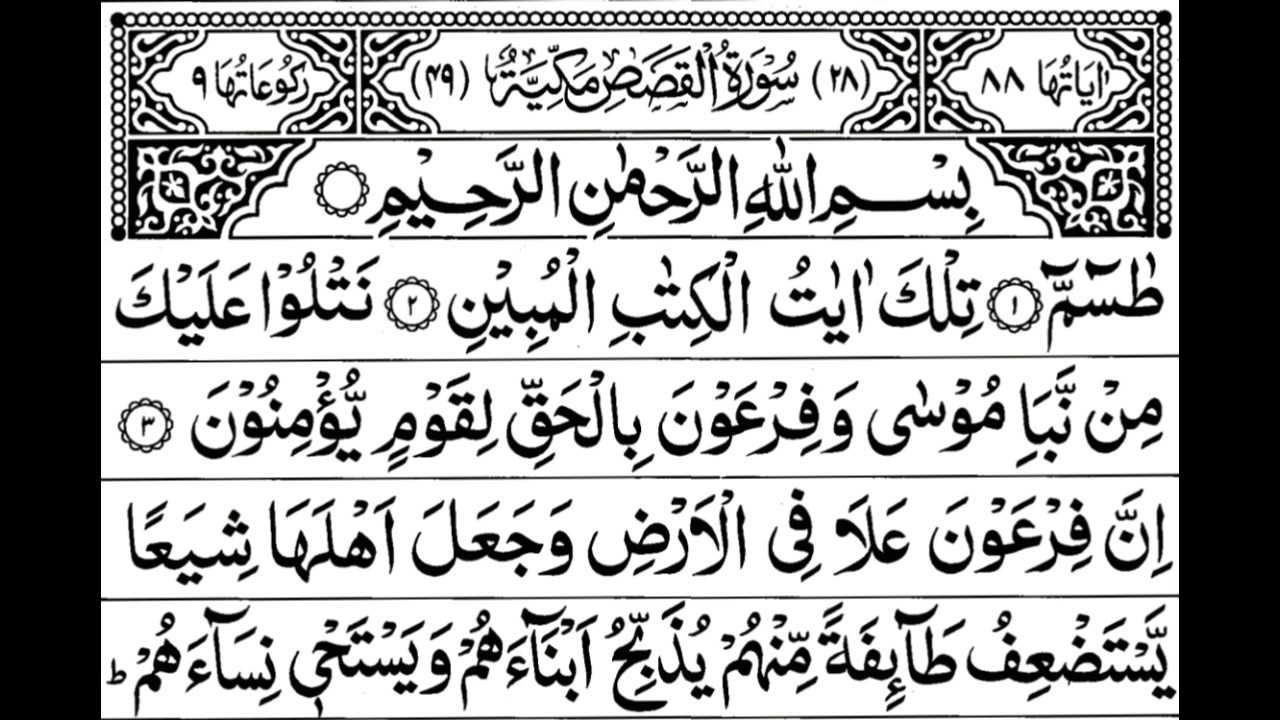 اٰیَاتُهَا ۸۸ (۲۸) سُوْرَةُ الْقَصَصِ مَكِّيَّةٌ (۴۹) رُكُوْعَاتُهَا ۹
بِسْمِ اللّٰهِ الرَّحْمٰنِ الرَّحِيْمِ
طٰسٓمّٓ ۝۱ تِلْكَ اٰيٰتُ الْكِتٰبِ الْمُبِيْنِ ۝۲ نَتْلُوْا عَلَيْكَ
مِنْ نَّبَاِ مُوْسٰى وَفِرْعَوْنَ بِالْحَقِّ لِقَوْمٍ يُّؤْمِنُوْنَ ۝۳
اِنَّ فِرْعَوْنَ عَلَا فِى الْاَرْضِ وَجَعَلَ اَهْلَهَا شِيَعًا
يَّسْتَضْعِفُ طَآئِفَةً مِّنْهُمْ يُذَبِّحُ اَبْنَآءَهُمْ وَيَسْتَحْىٖ نِسَآءَهُمْ ؕ